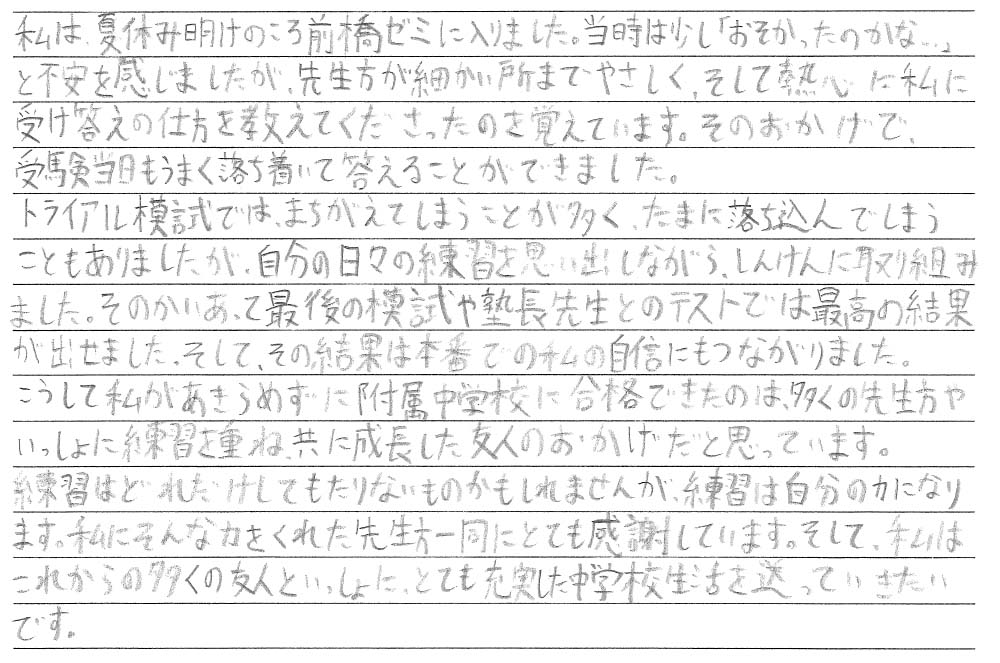 私は、夏休み明けのころ前橋ゼミに入りました。当時は少し「おそかったのかな…」
と不安を感じましたが、先生方が細かい所までやさしく、そして熱心に私に
受け答えの仕方を教えてくださったのを覚えています。そのおかげで、
受験当日もうまく落ち着いて答えることができました。
トライアル模試では、まちがえてしまうことが多く、たまに落ち込んでしまう
こともありましたが、自分の日々の練習を思い出しながら、しんけんに取り組み
ました。そのかいあって最後の模試や塾長先生とのテストでは最高の結果
が出せました。そして、その結果は本番での私の自信にもつながりました。
こうして私があきらめずに附属中学校に合格できたのは、多くの先生方や
いっしょに練習を重ね、共に成長した友人のおかげだと思っています。
練習はどれだけしてもたりないものかもしれませんが、練習は自分の力になり
ます。私にそんな力をくれた先生方一同にとても感謝しています。そして、私は
これからの多くの友人といっしょに、とても充実した中学校生活を送っていきたい
です。